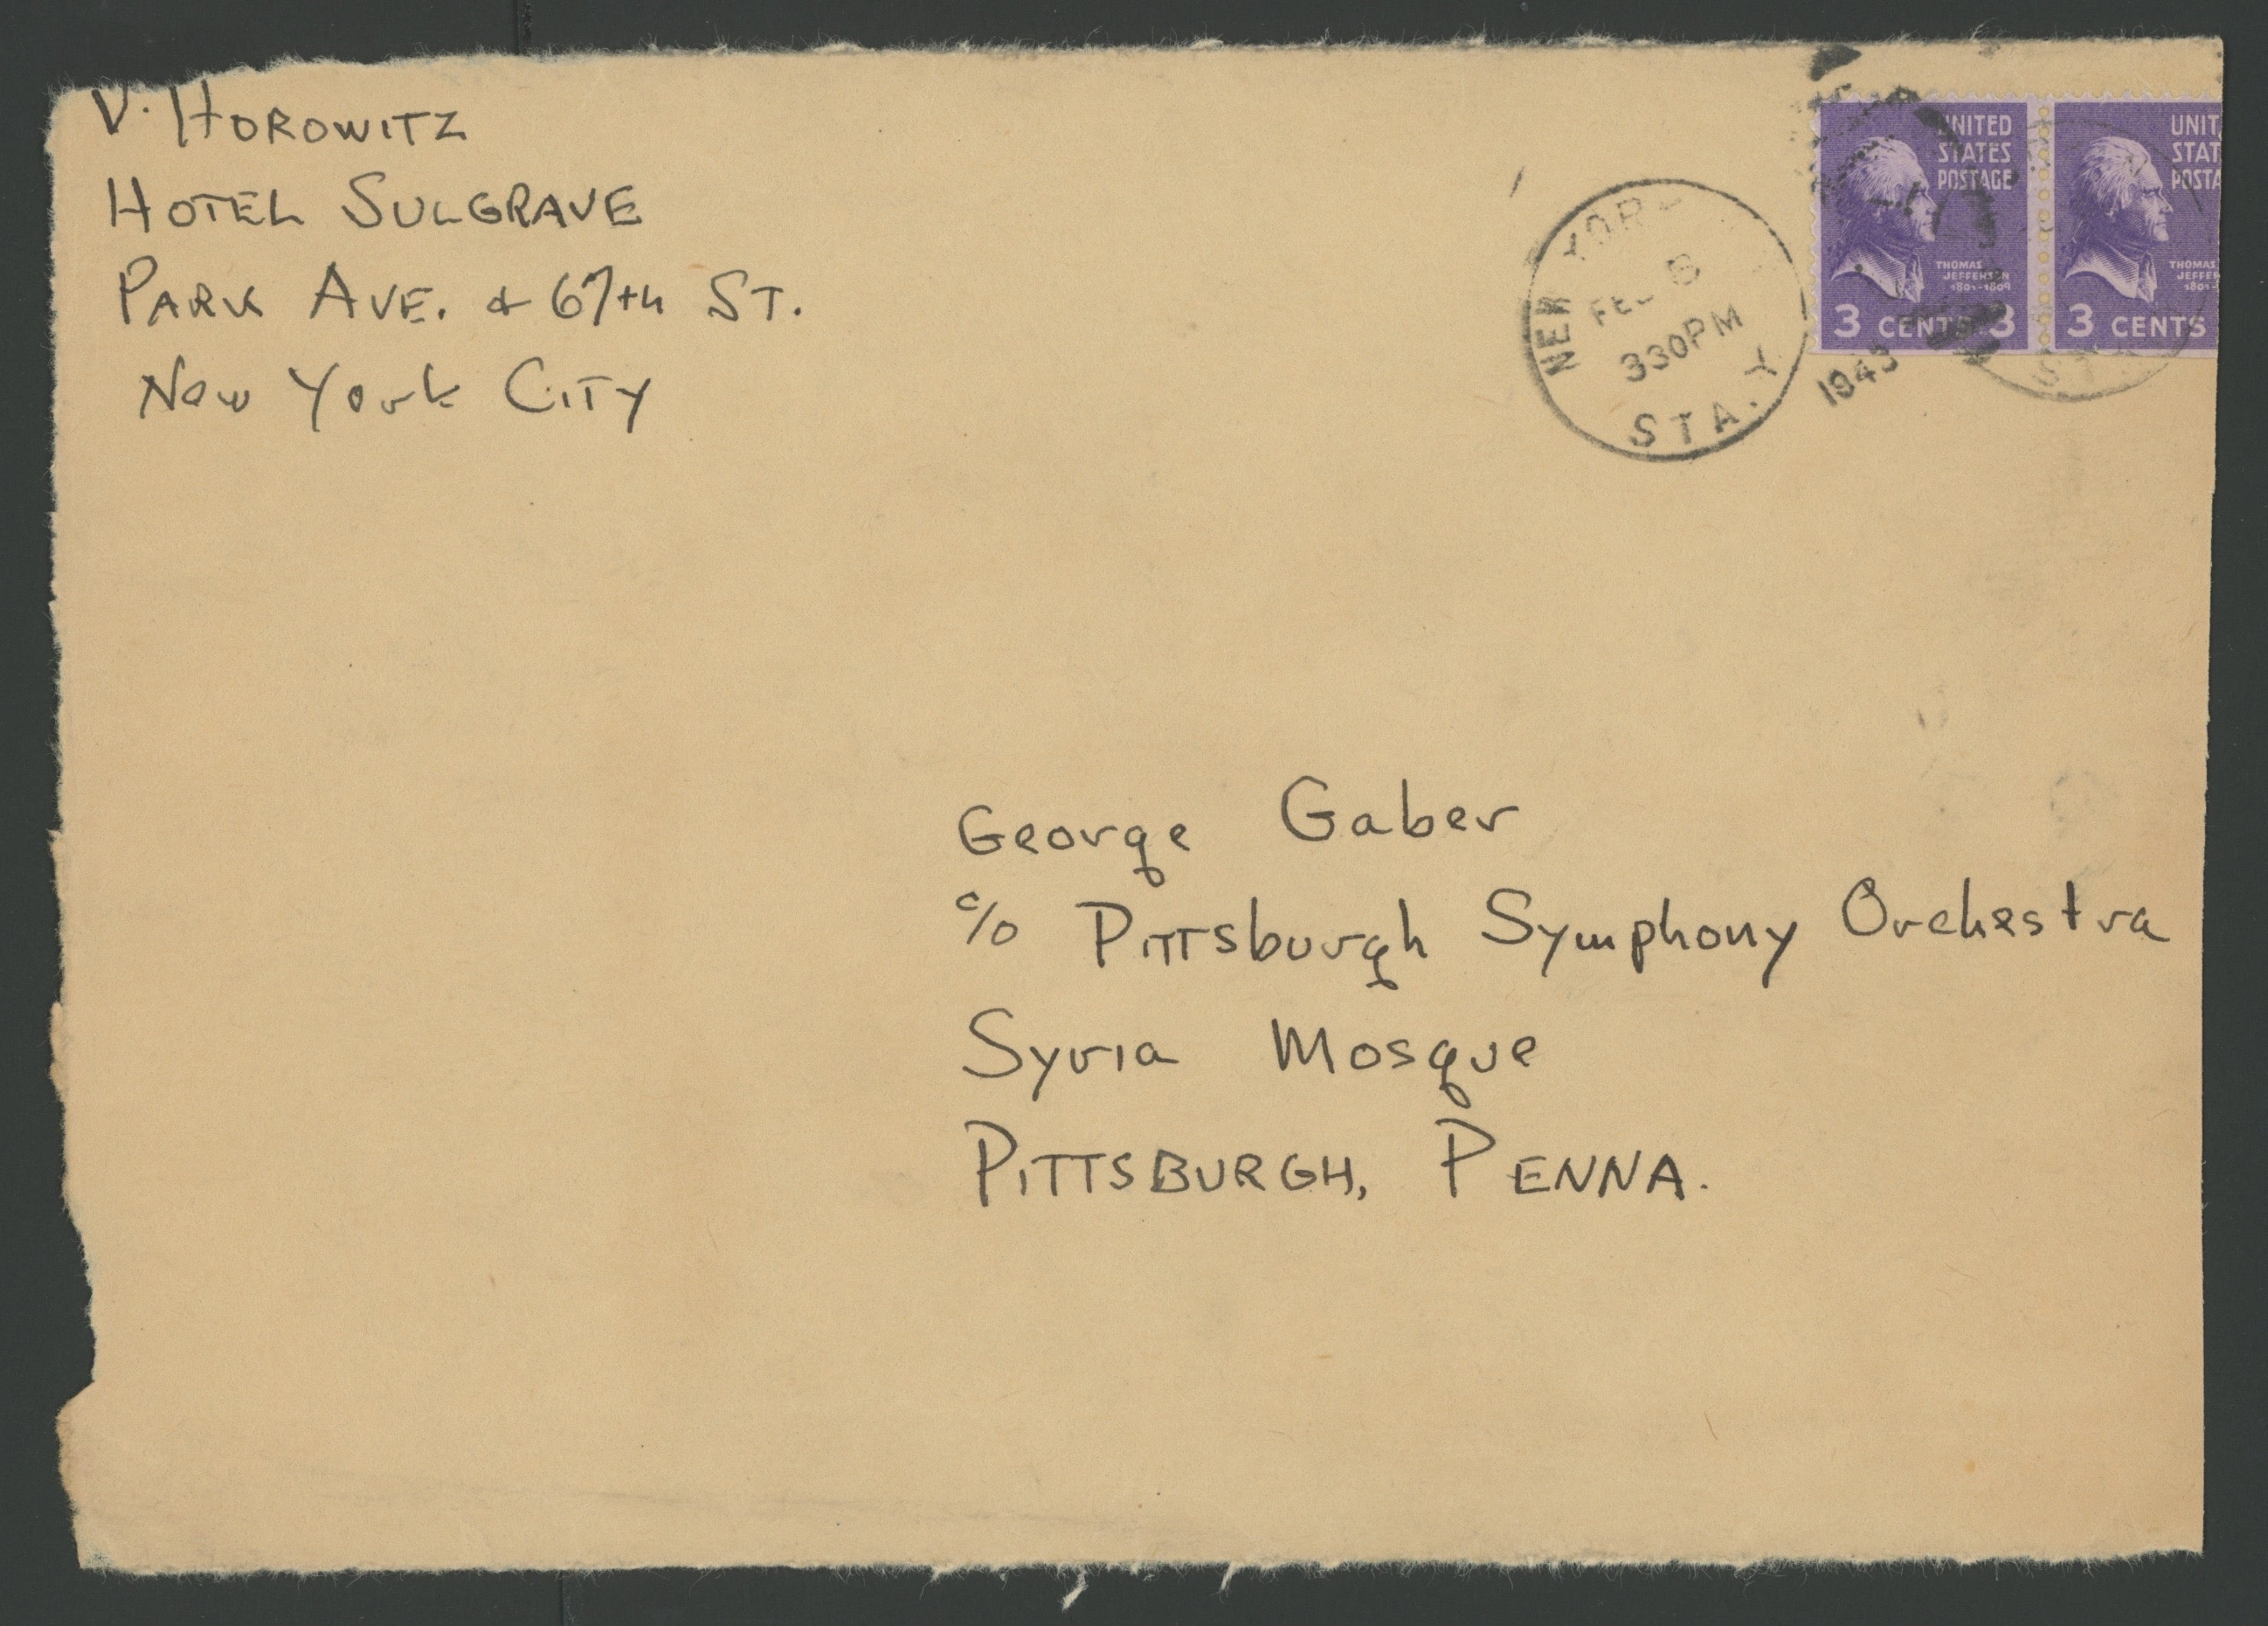 V. HOROWITZ
HOTEL SULGRAVE
PARK AVE. & 67th ST.
New York CITY
NEW YORK
FEB 8
330PM
STA. Y
1943
UNITED
STATES
POSTAGE
THOMAS
JEFFERSON
1801-1809
3 CENTS 3
UNIT
STAT
POSTA
THOMAS
JEFFE
1801-
3 CENTS
STA
George Gaber
c/o Pittsburgh Symphony Orchestra
Syria Mosque
PITTSBURGH, PENNA.